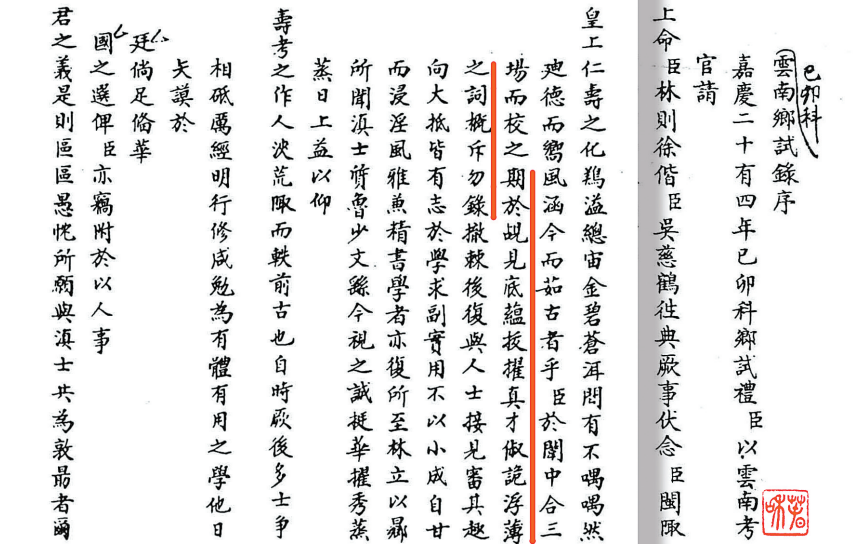 己卯科
雲南鄉試錄序
嘉慶二十有四年己卯科鄉試禮臣以雲南考
官請
上命臣林則徐偕臣吳慈鶴往典厥事伏念臣閩陬
皇上仁壽之化溢總宙金碧蒼洱間有不喁喁然
廸德而嚮風涵今而茹古者乎臣於闈中合三
場而校之期於覘見底蘊拔擢真才俶詭浮薄
之詞概斥勿錄撤棘後復與人士接見審其趨
向大抵皆有志於學求副實用不以小成自甘
而浸淫風雅兼精書學者亦復所至林立以曩
所聞滇士質魯少文繇今視之誠挺華擢秀蒸
蒸日上益以仰
壽考之作人浹荒陬而軼前古也自時厥後多士爭
相砥厲經明行修咸勉為有體有用之學他日
矢謨於
廷倘足備華
國之選俾臣亦竊附於以人事
君之義是則區區愚忱所願與滇士共為敦勗者爾